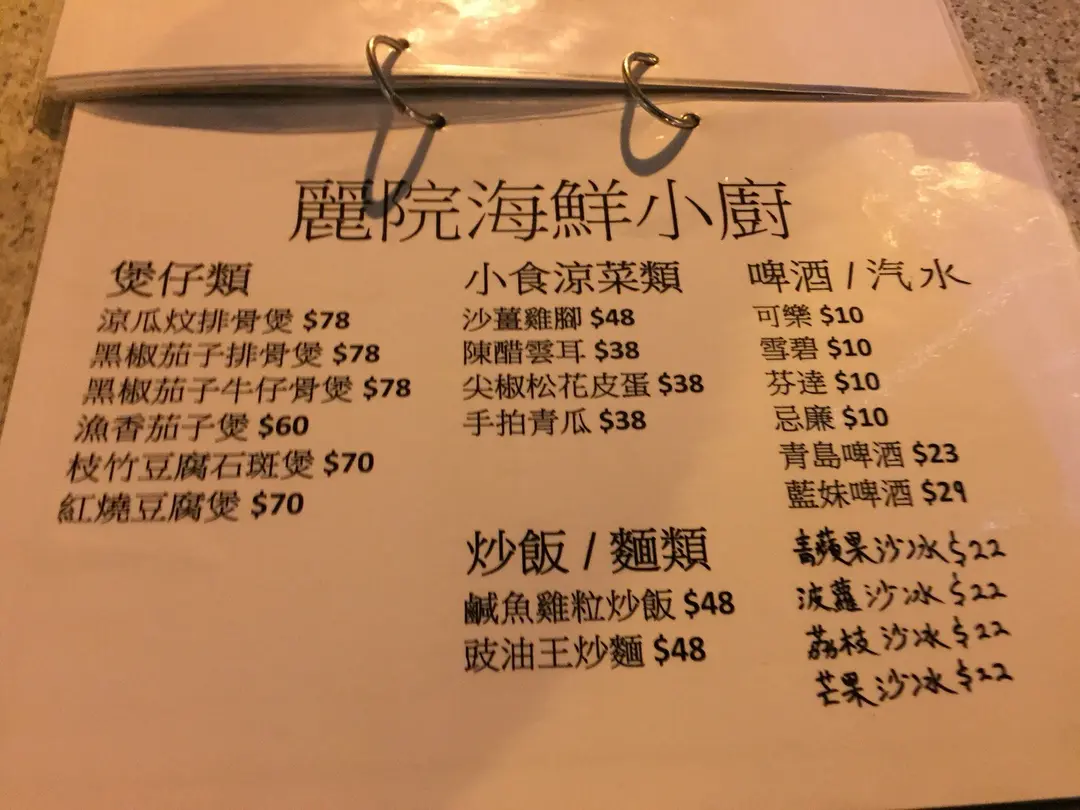 麗院海鮮小廚
煲仔類
涼瓜炆排骨煲 $78
黑椒茄子排骨煲 $78
黑椒茄子牛仔骨煲 $78
漁香茄子煲 $60
枝竹豆腐石斑煲 $70
紅燒豆腐煲 $70
小食涼菜類
沙薑雞腳 $48
陳醋雲耳 $38
尖椒松花皮蛋 $38
手拍青瓜 $38
炒飯 / 麵類
鹹魚雞粒炒飯 $48
豉油王炒麵 $48
啤酒 / 汽水
可樂 $10
雪碧 $10
芬達 $10
忌廉 $10
青島啤酒 $23
藍妹啤酒 $29
青蘋果沙冰 $22
波蘿沙冰 $22
荔枝沙冰 $22
芒果沙冰 $22